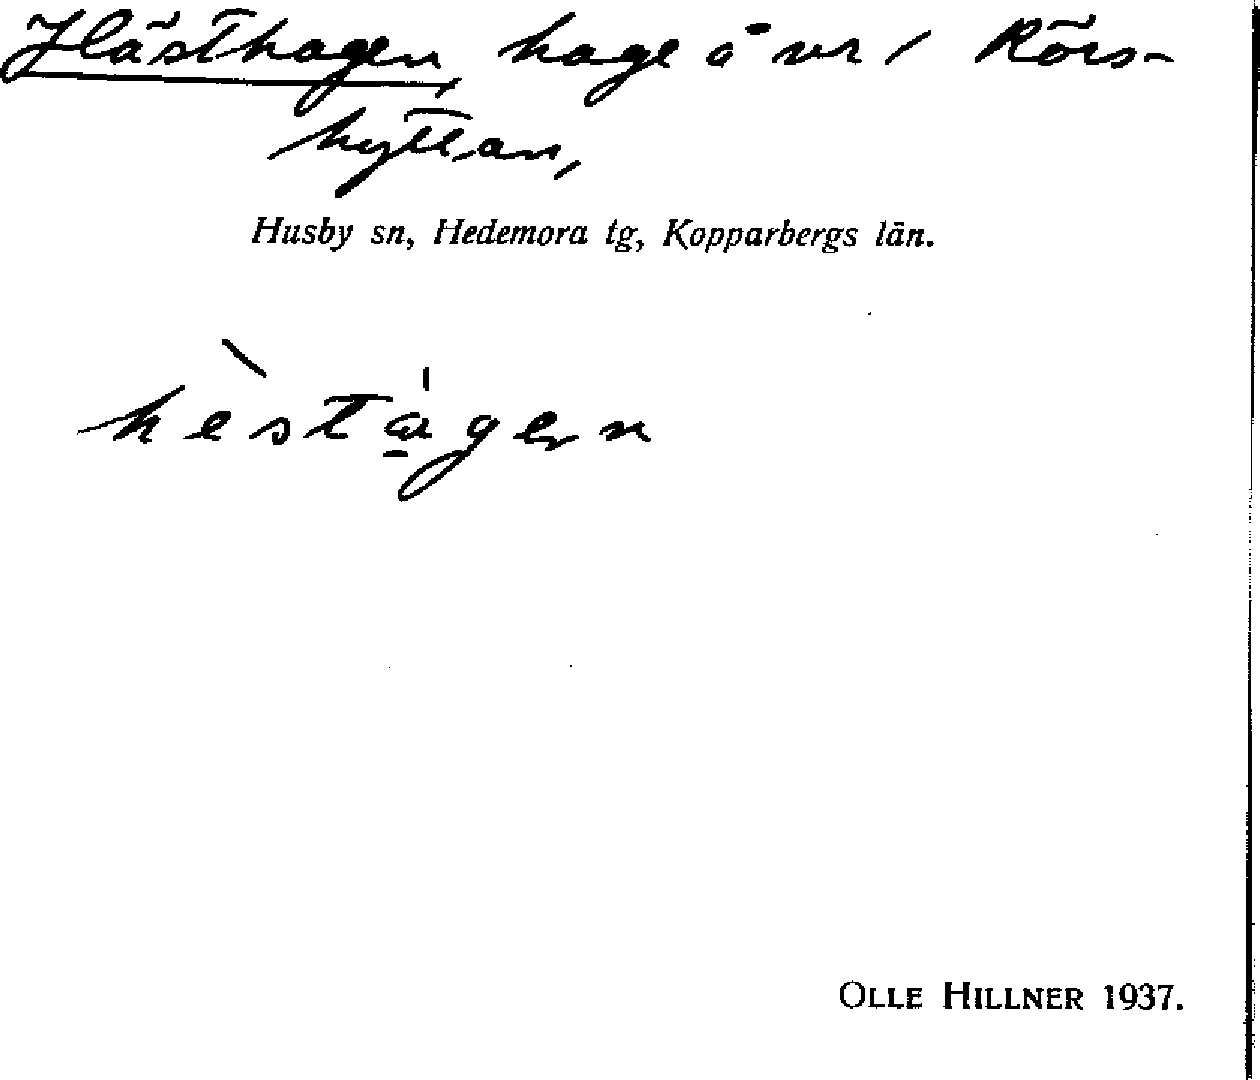 Hästhagen, hage å vr / Rörs-
hyttan,
Husby sn, Hedemora tg, Kopparbergs län.
hèstagen
OLLE HILLNER 1937.